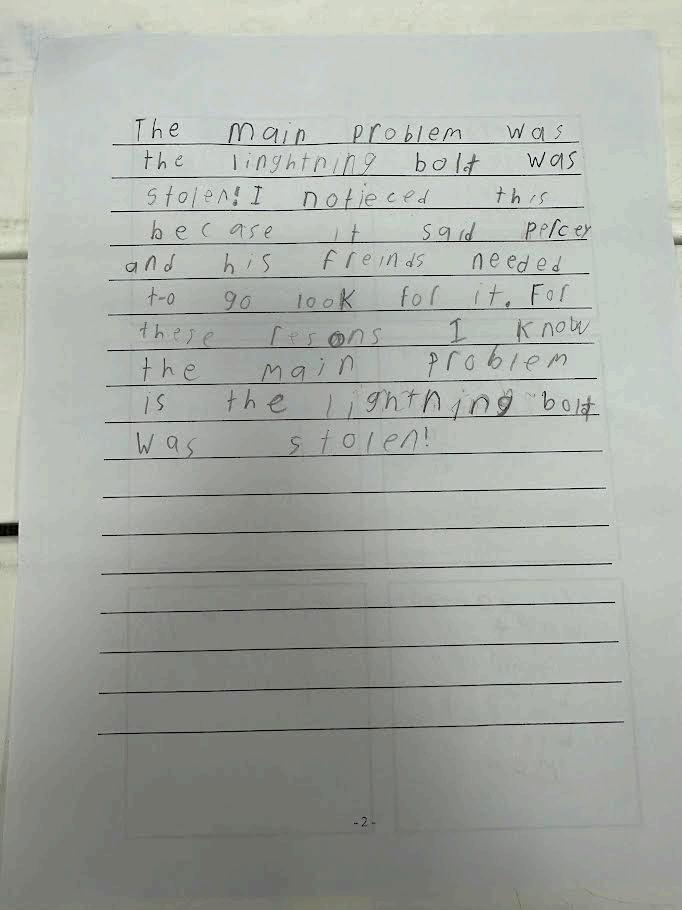 The main problem was
the linghtning bolt was
stolen! I notieced this
becase it said percey
and his freinds needed
to go look for it. For
these resons I know
the main problem
is the lightning bolt
was stolen!
-2-